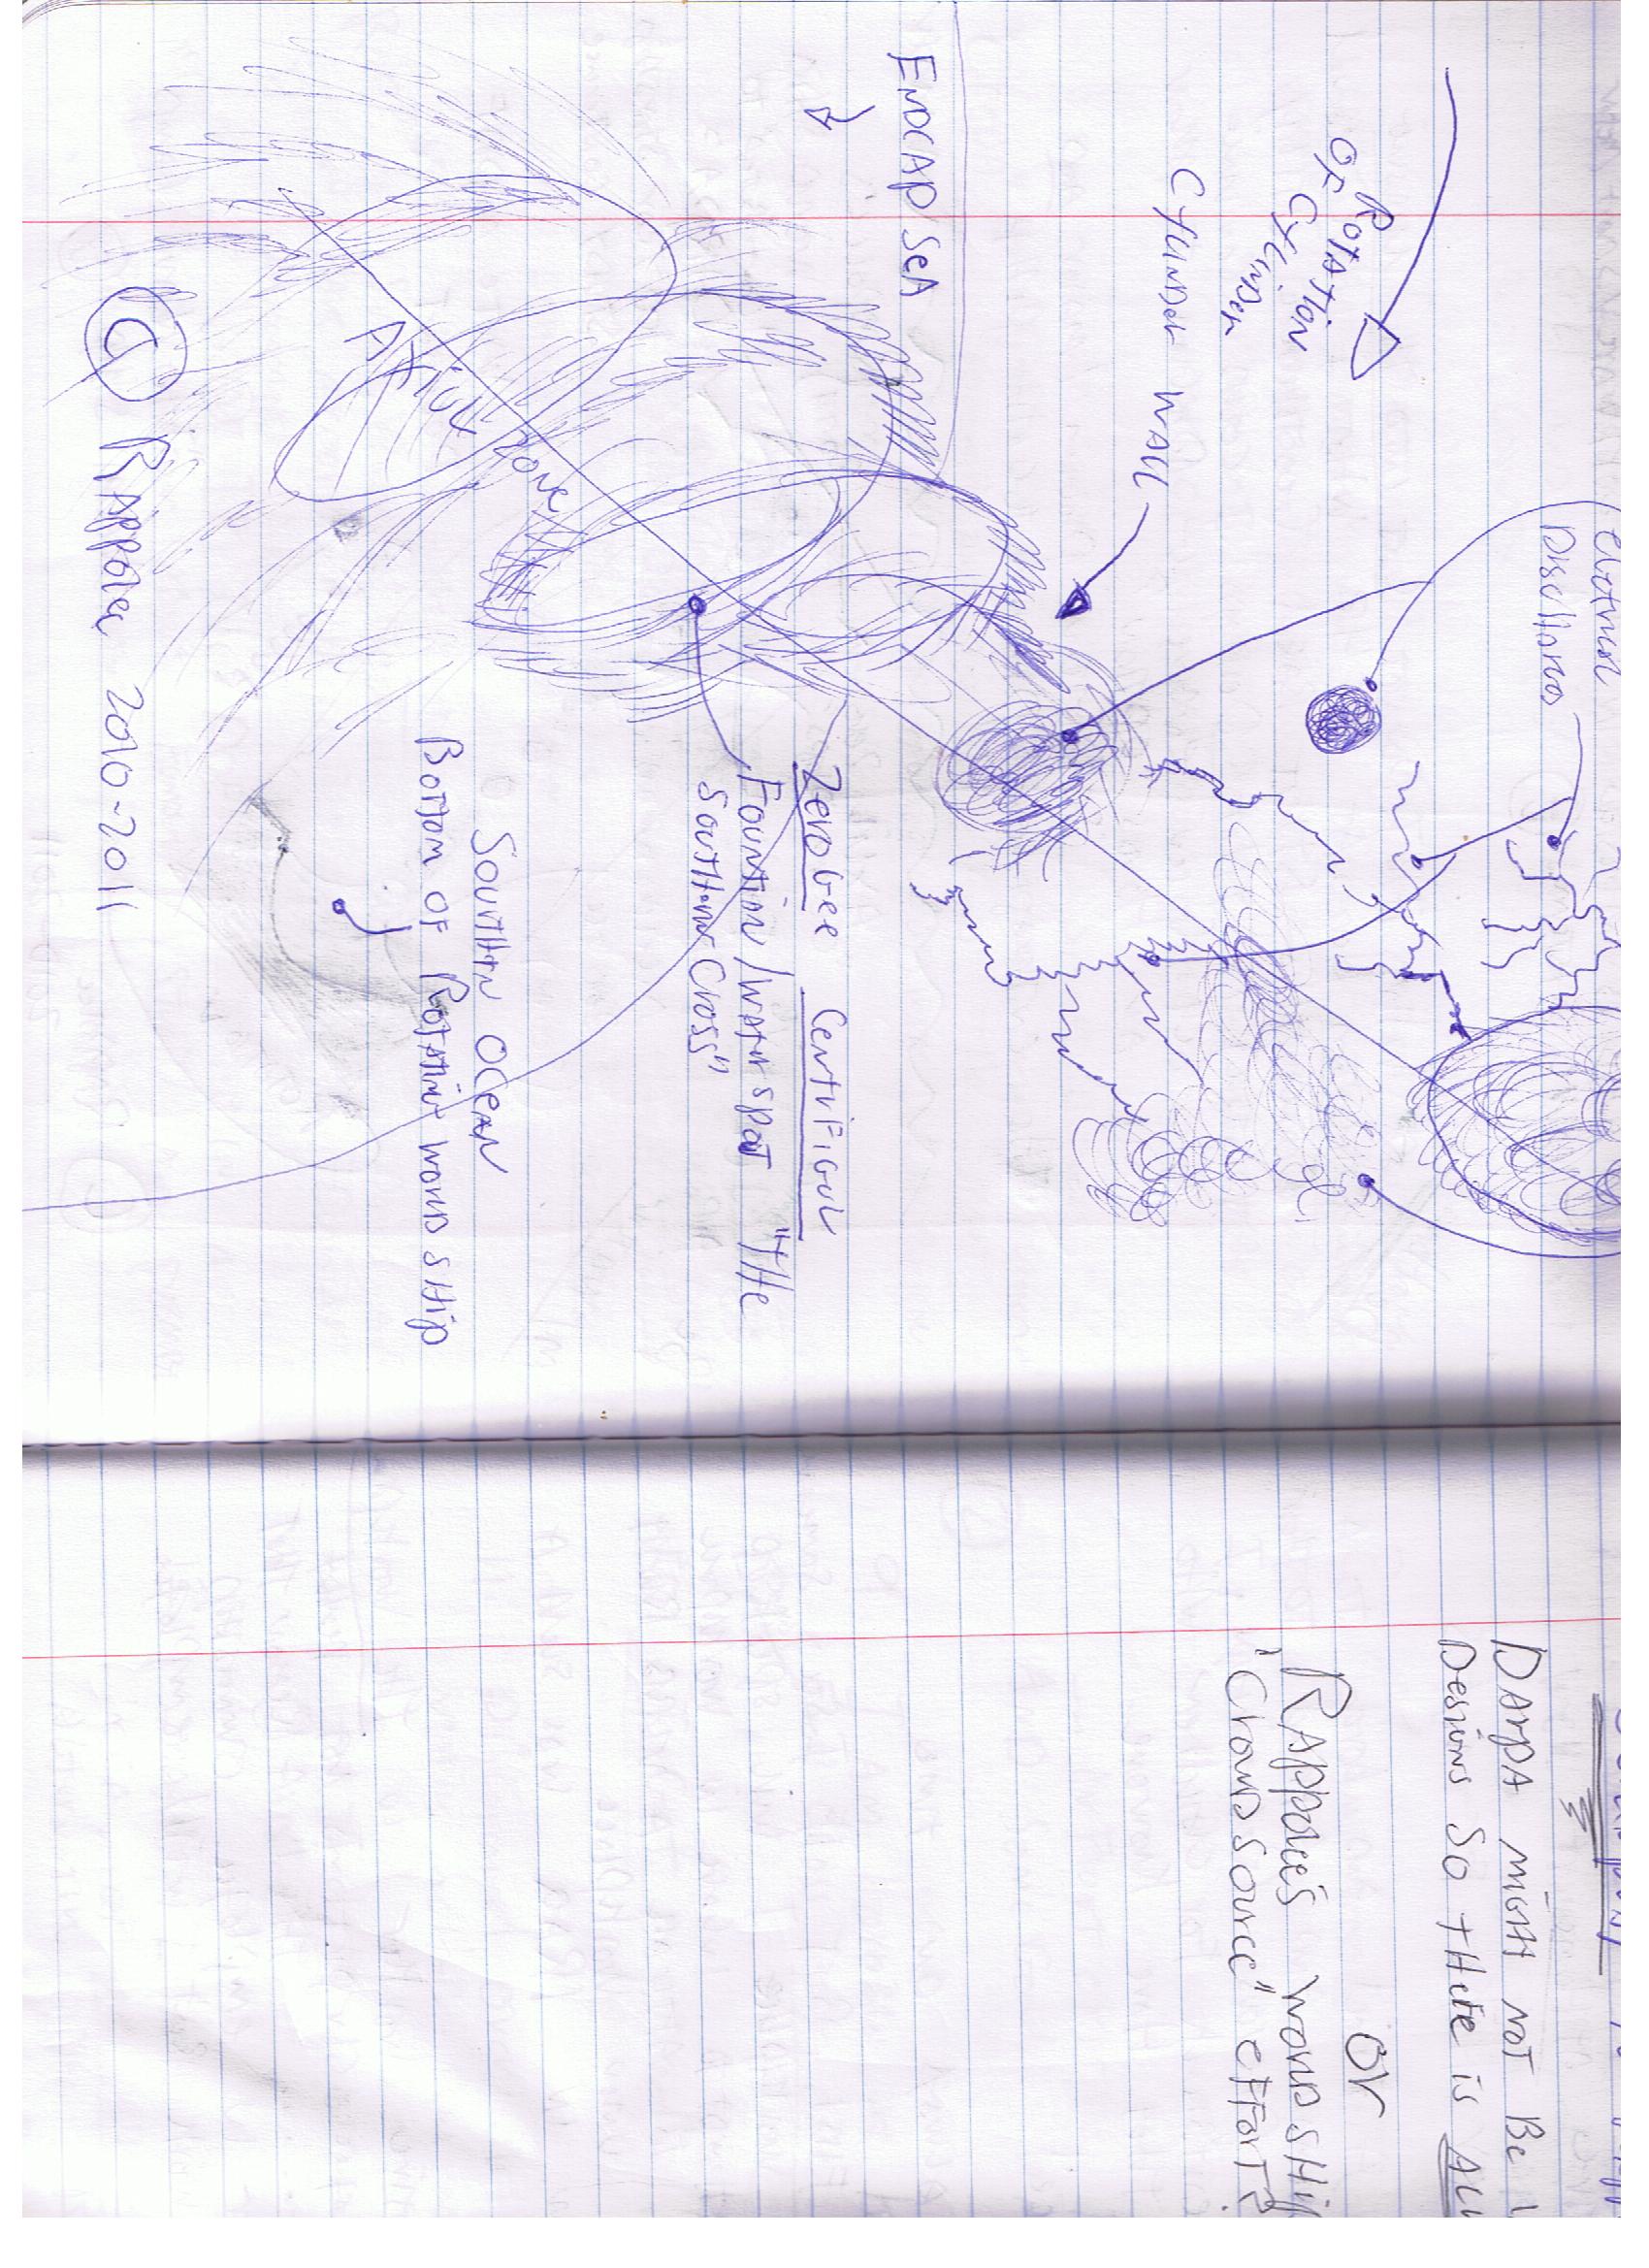 Rotation
Of Cylinder
Cylinder wall
Endcap Sea
Axial zone
Zero Gee Centrifigul
Fountin / Water spot "THe
SoutHern Cross"
SoutHrn Ocean
Bottom OF Rotatinv world sHip
© Rappolee 2010-2011
DArpA migHt not Be
Designs So tHere is
or
Rappolee's world sHip
"Crowd source" eFFort?